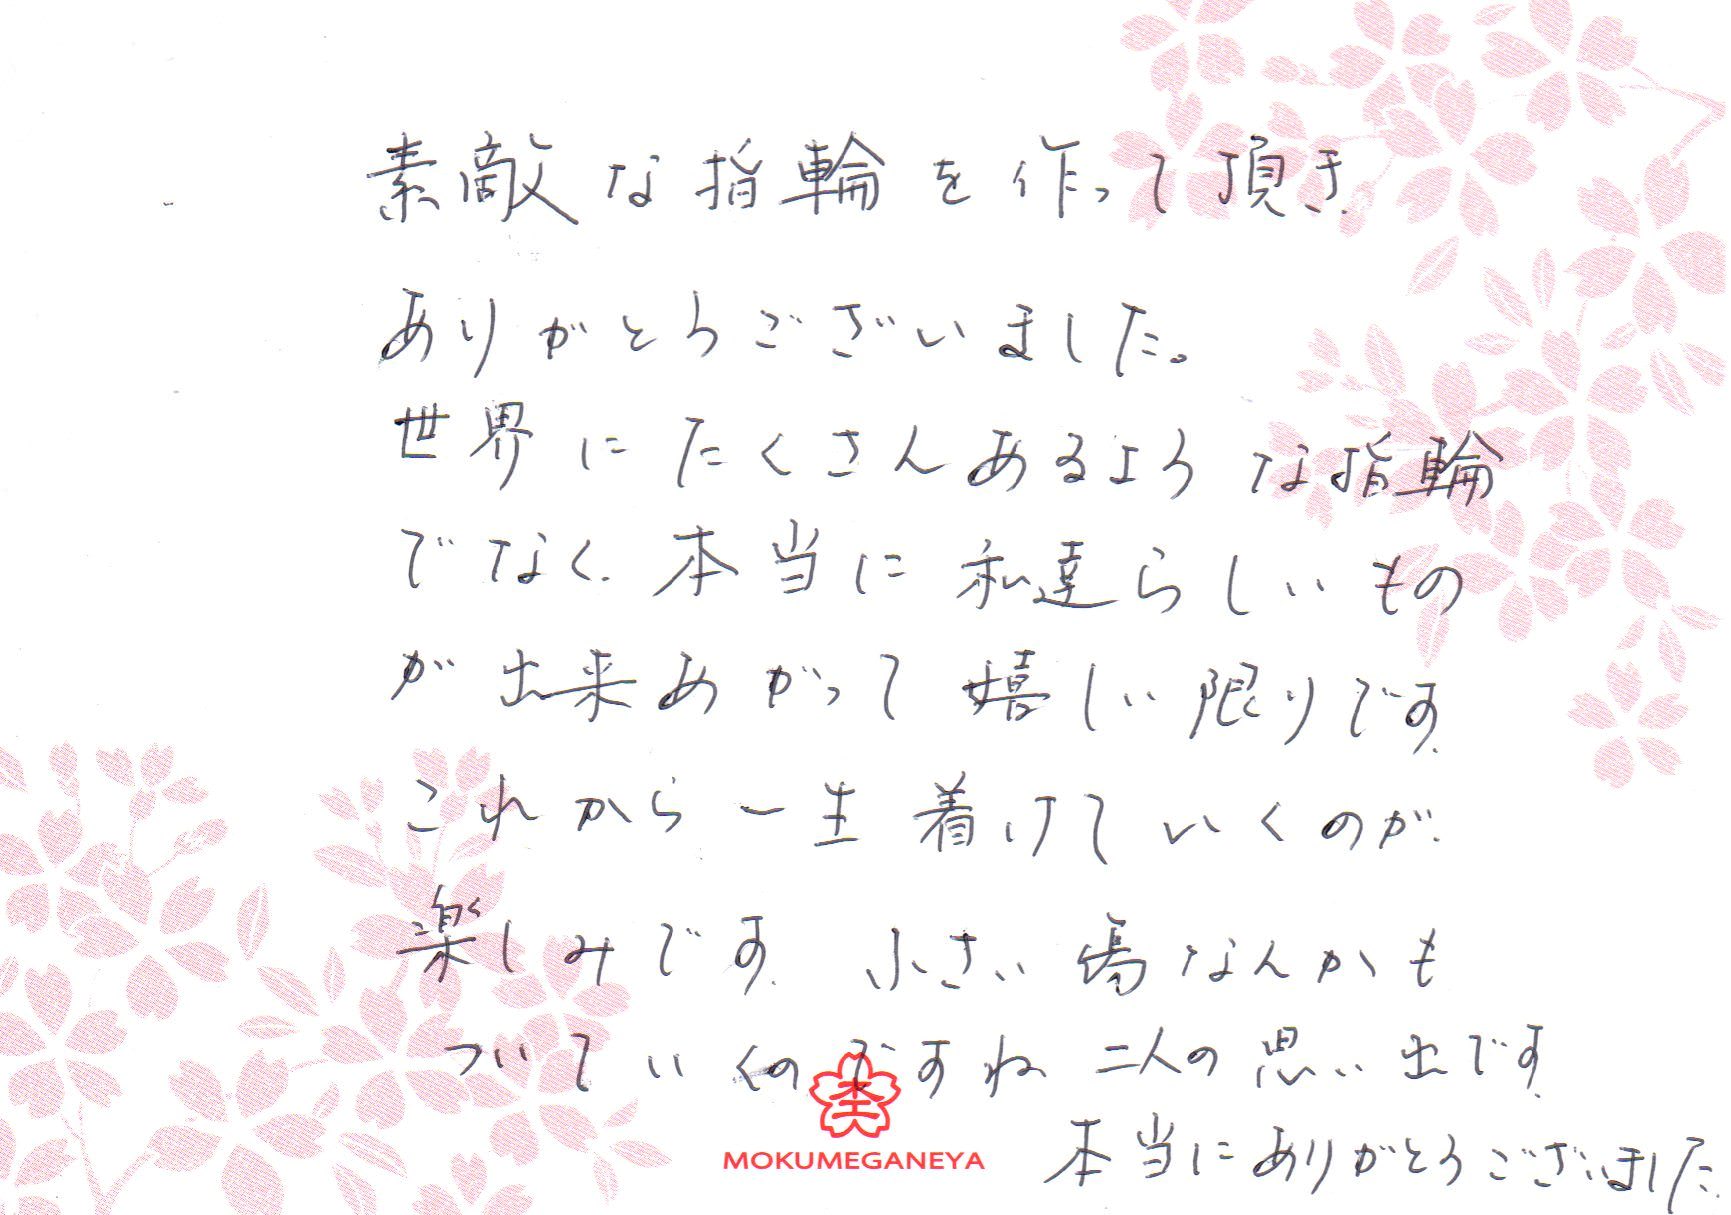 素敵な指輪を作って頂き
ありがとうございました。
世界にたくさんあるような指輪
でなく、本当に私達らしいもの
が出来あがって嬉しい限りです。
これから一生着けていくのが、
楽しみです。小さい傷なんかも
ついていくのですね、二人の思い出です。
MOKUMEGANEYA
本当にありがとうございました。